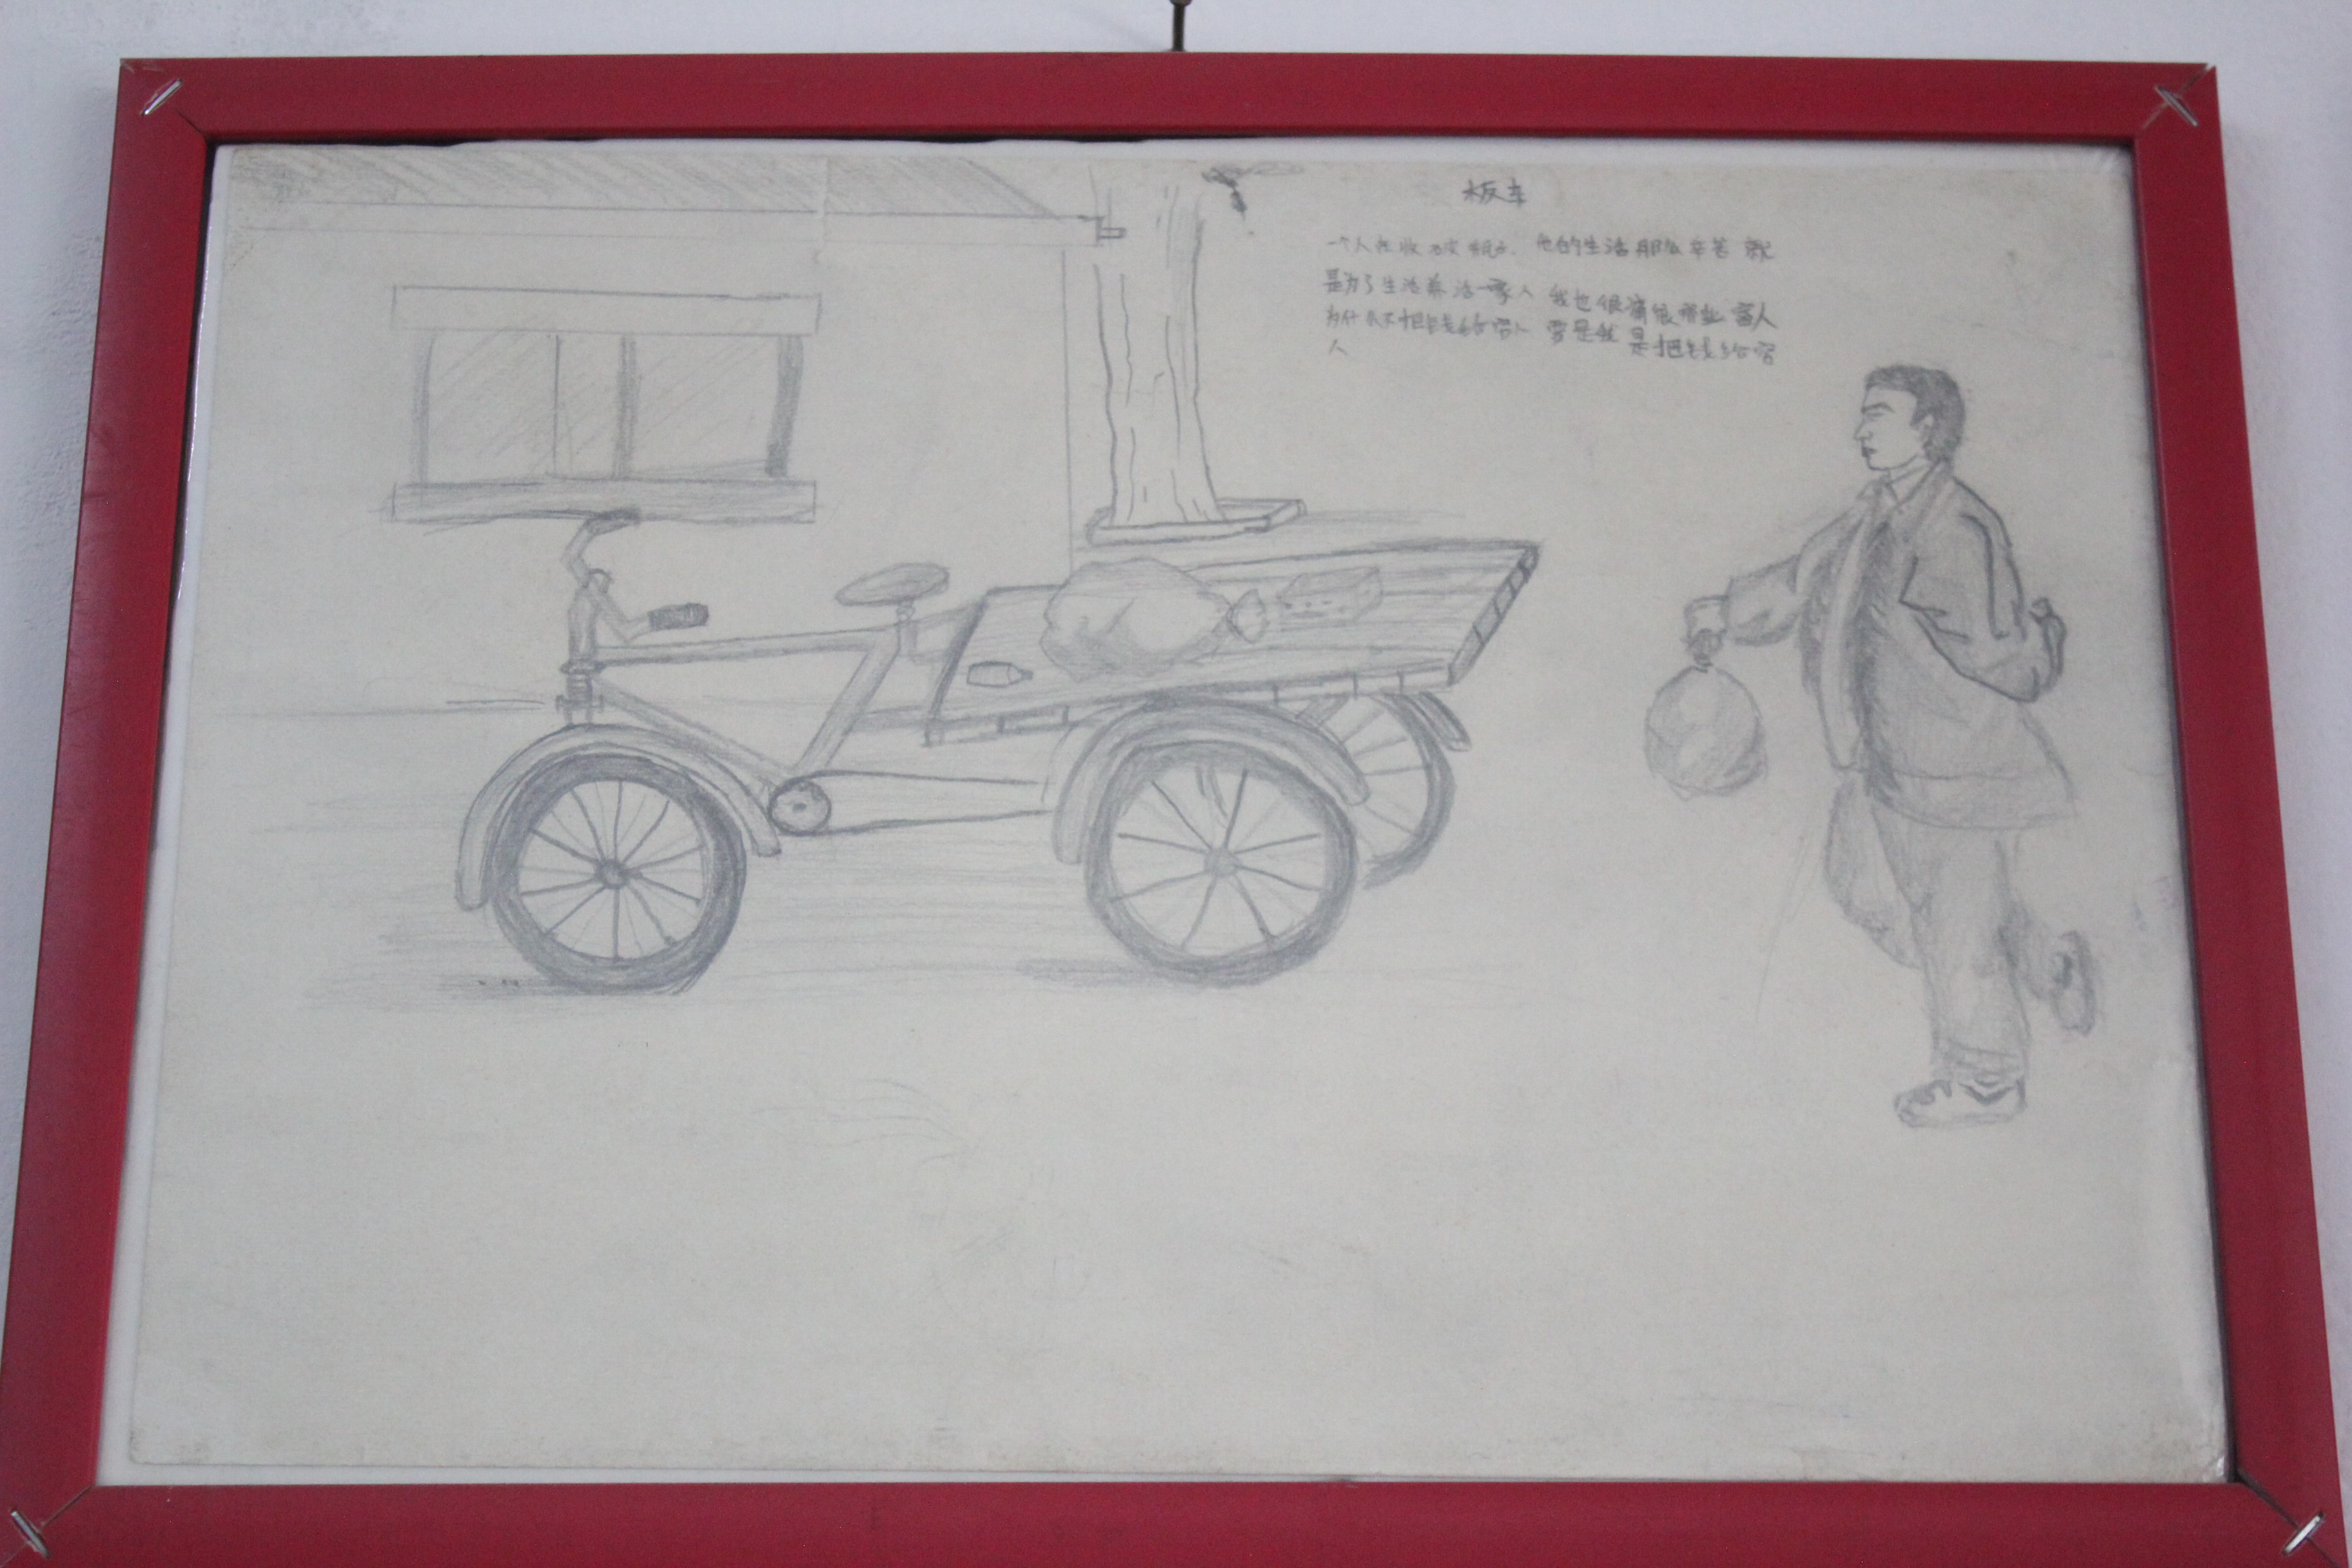 板车
一个人在收破瓶子. 他的生活那么辛苦 就
是为了生活养活一家人 我也很痛恨那些富人
为什么不把钱给穷人 要是我 是把钱给穷
人